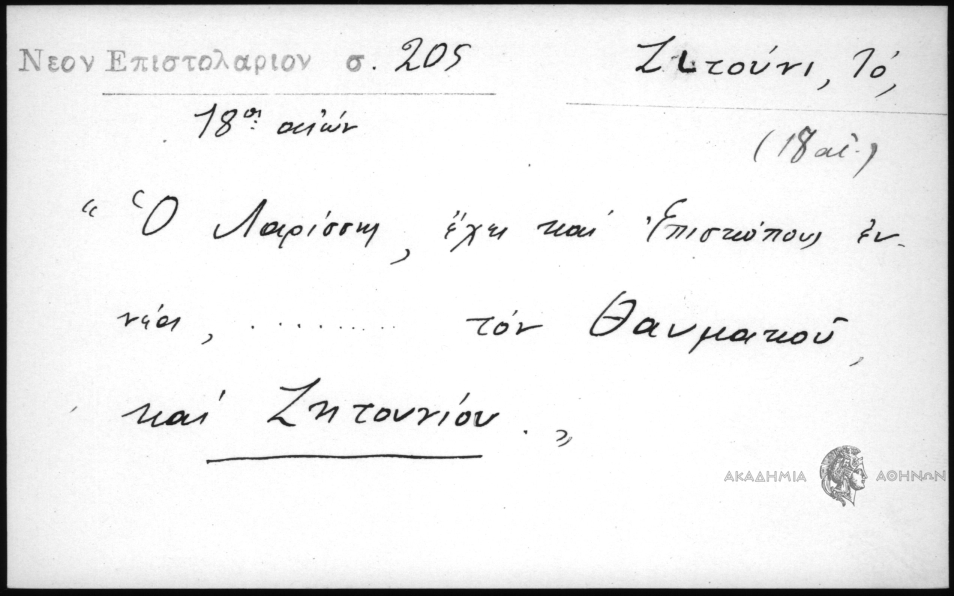 Νεον Επιστολαριον σ. 205
Ζιτούνι, Τό,
18ος αἰών
(18 αἰ.)
“ Ὁ Λαρίσσης, ἔχει καί Ἐπισκόπους ἐν-
νέα, .......... τόν Θαυμακοῦ,
καί Ζητουνίου. „
ΑΚΑΔΗΜΙΑ ΑΘΗΝΩΝ